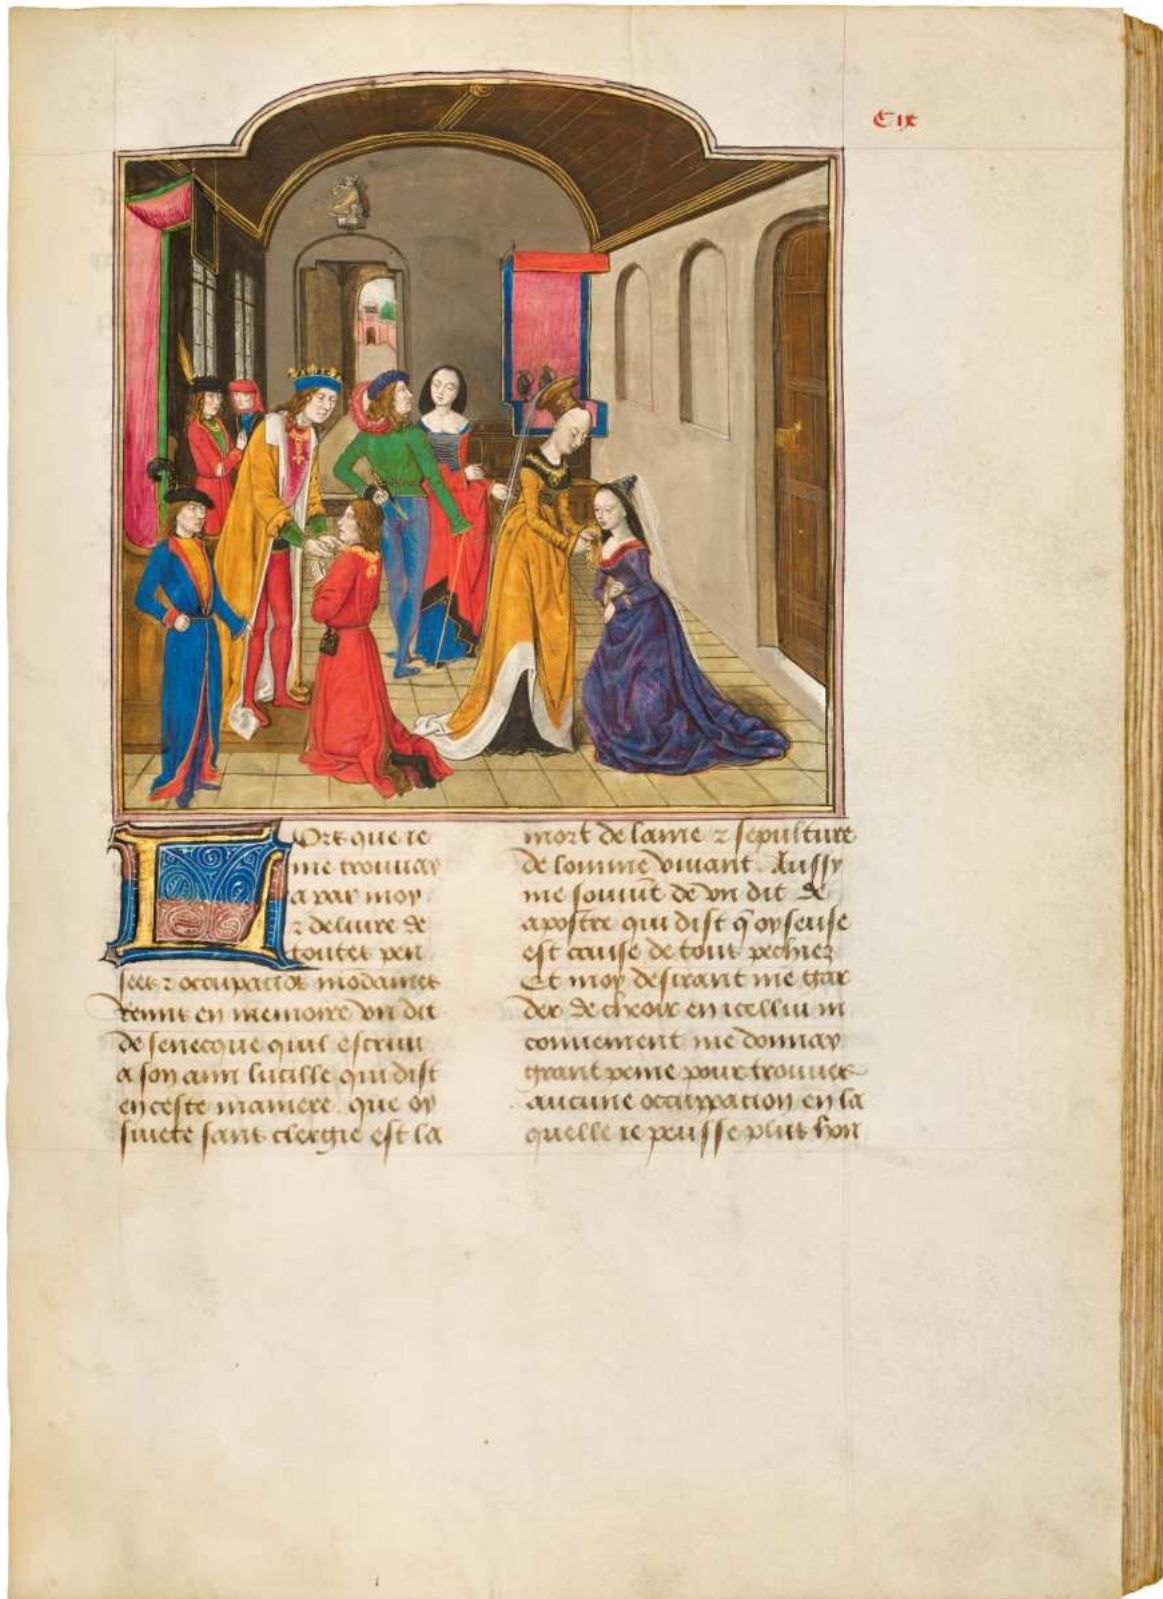 C ix
LOrs que ie
me trouuay
a par moy
⁊ deliure de
toutes pen
sees ⁊ occupaciōs mōdaines
reuint en memoire vn dit
de senecque quil escriui
a son amy lucille qui dist
en ceste maniere. que oy
siuete sans clergie est la
mort de lame ⁊ sepulture
de lomme viuant. Aussy
me souuīt de vn dit de
apostre qui dist q̄ oyseuse
est cause de tous pechiez
Et moy desirant me gar
der de cheoir en icellui in
conuenient me donnay
grant peine pour trouuer
aucune occupacion en la
quelle ie peusse plus hon